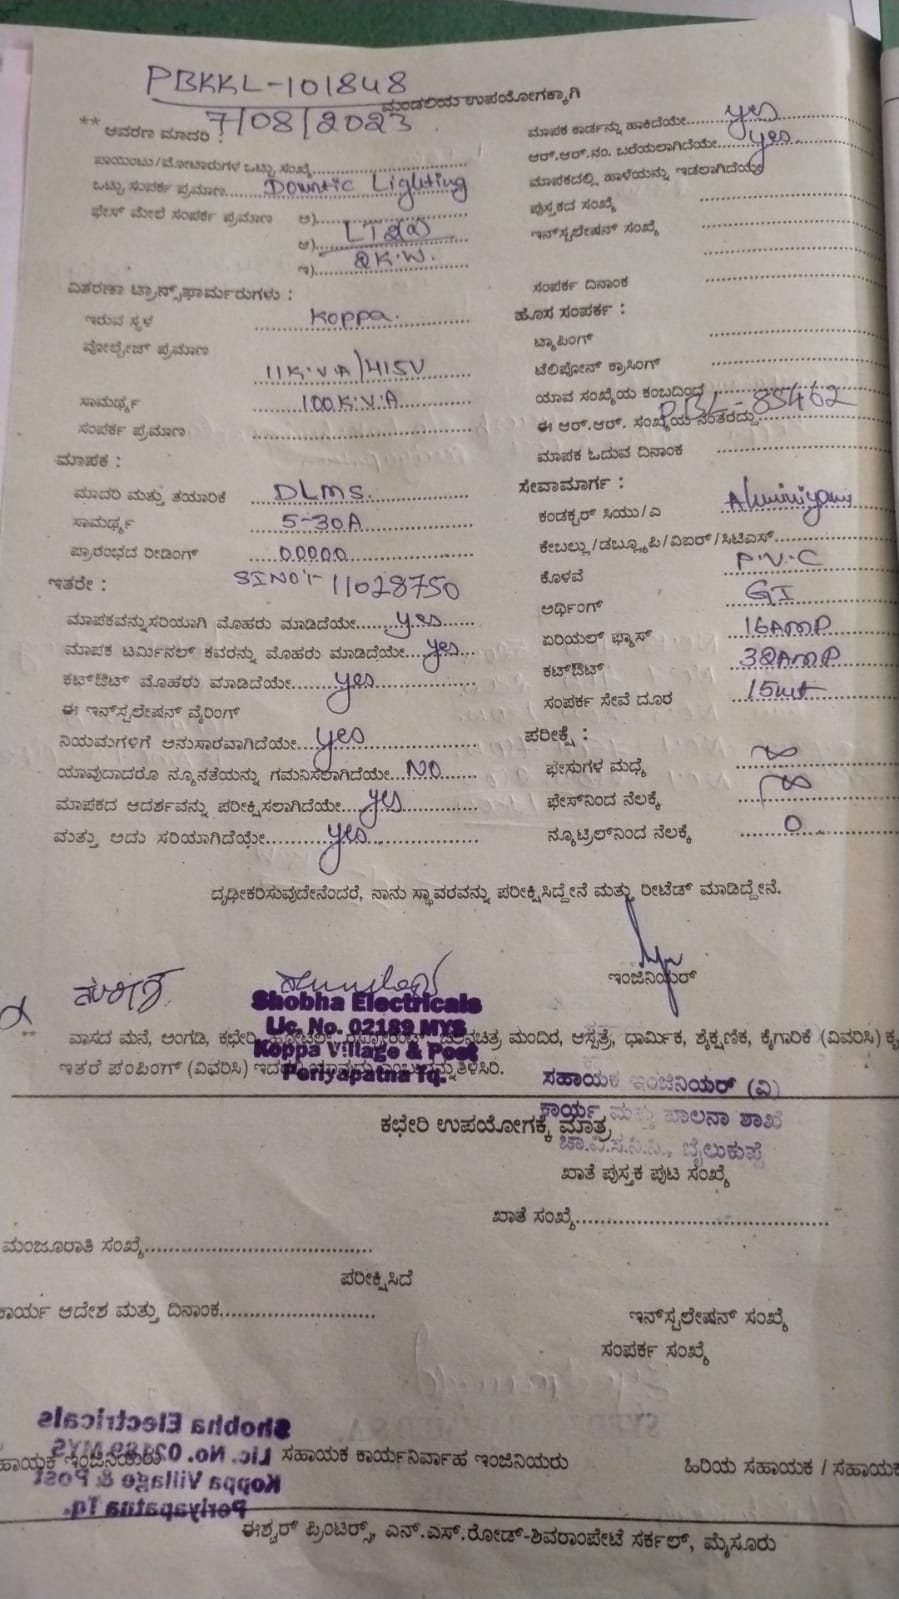 PBKKL-101848
ಮಂಡಲಿಯ ಉಪಯೋಗಕ್ಕಾಗಿ
7/08/2023
** ಆವರಣ ಮಾದರಿ
ಪಾಯಿಂಟು/ಮೋಟಾರುಗಳ ಒಟ್ಟು ಸಂಖ್ಯೆ
ಒಟ್ಟು ಸಂಪರ್ಕ ಪ್ರಮಾಣ Downtic Lighting
ಫೇಸ್ ಮೇಲೆ ಸಂಪರ್ಕ ಪ್ರಮಾಣ ಅ)
ಆ) LT2(a)
ಇ) 2K.W.
ವಿತರಣಾ ಟ್ರಾನ್ಸ್‌ಫಾರ್ಮರುಗಳು :
ಇರುವ ಸ್ಥಳ Koppa.
ವೋಲ್ಟೇಜ್ ಪ್ರಮಾಣ
11K.V.A/415V
ಸಾಮರ್ಥ್ಯ 100K.V.A
ಸಂಪರ್ಕ ಪ್ರಮಾಣ
ಮಾಪಕ :
ಮಾದರಿ ಮತ್ತು ತಯಾರಿಕೆ DLMS.
ಸಾಮರ್ಥ್ಯ 5-30A
ಪ್ರಾರಂಭದ ರೀಡಿಂಗ್ 00000
ಇತರೇ : SINO:- 11028750
ಮಾಪಕವನ್ನುಸರಿಯಾಗಿ ಮೊಹರು ಮಾಡಿದೆಯೇ yes
ಮಾಪಕ ಟರ್ಮಿನಲ್ ಕವರನ್ನು ಮೊಹರು ಮಾಡಿದೆಯೇ yes
ಕಟ್‌ಔಟ್ ಮೊಹರು ಮಾಡಿದೆಯೇ yes
ಈ ಇನ್‌ಸ್ಟಲೇಷನ್ ವೈರಿಂಗ್
ನಿಯಮಗಳಿಗೆ ಅನುಸಾರವಾಗಿದೆಯೇ yes
ಯಾವುದಾದರೂ ನ್ಯೂನತೆಯನ್ನು ಗಮನಿಸಲಾಗಿದೆಯೇ NO
ಮಾಪಕದ ಆದರ್ಶವನ್ನು ಪರೀಕ್ಷಿಸಲಾಗಿದೆಯೇ yes
ಮತ್ತು ಅದು ಸರಿಯಾಗಿದೆಯೇ yes
ಮಾಪಕ ಕಾರ್ಡನ್ನು ಹಾಕಿದೆಯೇ yes
ಆರ್.ಆರ್.ನಂ. ಬರೆಯಲಾಗಿದೆಯೇ yes
ಮಾಪಕದಲ್ಲಿ ಹಾಳೆಯನ್ನು ಇಡಲಾಗಿದೆಯೇ
ಪುಸ್ತಕದ ಸಂಖ್ಯೆ
ಇನ್‌ಸ್ಟಲೇಷನ್ ಸಂಖ್ಯೆ
ಸಂಪರ್ಕ ದಿನಾಂಕ
ಹೊಸ ಸಂಪರ್ಕ :
ಟ್ಯಾಪಿಂಗ್
ಟೆಲಿಫೋನ್ ಕ್ರಾಸಿಂಗ್
ಯಾವ ಸಂಖ್ಯೆಯ ಕಂಬದಿಂದ
ಈ ಆರ್.ಆರ್. ಸಂಖ್ಯೆಯ ನಂತರದ್ದು 85462
ಮಾಪಕ ಓದುವ ದಿನಾಂಕ
ಸೇವಾಮಾರ್ಗ :
ಕಂಡಕ್ಟರ್ ಸಿಯು/ಎ Aluminiyam
ಕೇಬಲ್ಲು/ಡಬ್ಲ್ಯೂಪಿ/ವಿಐಆರ್/ಸಿಟಿಎಸ್
ಕೊಳವೆ P.V.C
ಅರ್ಥಿಂಗ್ GI
ಏರಿಯಲ್ ಫ್ಯೂಸ್ 16AMP
ಕಟ್‌ಔಟ್ 32AMP
ಸಂಪರ್ಕ ಸೇವೆ ದೂರ 15mt
ಪರೀಕ್ಷೆ :
ಫೇಸುಗಳ ಮಧ್ಯೆ ∞
ಫೇಸ್‌ನಿಂದ ನೆಲಕ್ಕೆ ∞
ನ್ಯೂಟ್ರಲ್‌ನಿಂದ ನೆಲಕ್ಕೆ 0
ದೃಢೀಕರಿಸುವುದೇನೆಂದರೆ, ನಾನು ಸ್ಥಾವರವನ್ನು ಪರೀಕ್ಷಿಸಿದ್ದೇನೆ ಮತ್ತು ರೀಟೆಡ್ ಮಾಡಿದ್ದೇನೆ.
ಇಂಜಿನಿಯರ್
Shobha Electricals
Lic. No. 02189 MYS
Koppa Village & Post
Periyapatna Tq.
** ವಾಸದ ಮನೆ, ಅಂಗಡಿ, ಕಛೇರಿ, ಹೋಟೆಲ್, ರೆಸ್ಟೋರೆಂಟ್, ಚಲನಚಿತ್ರ ಮಂದಿರ, ಆಸ್ಪತ್ರೆ, ಧಾರ್ಮಿಕ, ಶೈಕ್ಷಣಿಕ, ಕೈಗಾರಿಕೆ (ವಿವರಿಸಿ) ಕೃ
ಇತರೆ ಪಂಪಿಂಗ್ (ವಿವರಿಸಿ) ಇದರಲ್ಲಿ ತಿಳಿಸಿರಿ.
ಸಹಾಯಕ ಇಂಜಿನಿಯರ್ (ವಿ)
ಕಾರ್ಯ ಮತ್ತು ಪಾಲನಾ ಶಾಖೆ
ಚಾ.ವಿ.ಸ.ನಿ.ನಿ., ಬೈಲುಕುಪ್ಪೆ
ಕಛೇರಿ ಉಪಯೋಗಕ್ಕೆ ಮಾತ್ರ
ಖಾತೆ ಪುಸ್ತಕ ಪುಟ ಸಂಖ್ಯೆ
ಖಾತೆ ಸಂಖ್ಯೆ
ಮಂಜೂರಾತಿ ಸಂಖ್ಯೆ
ಪರೀಕ್ಷಿಸಿದೆ
ಕಾರ್ಯ ಆದೇಶ ಮತ್ತು ದಿನಾಂಕ
ಇನ್‌ಸ್ಟಲೇಷನ್ ಸಂಖ್ಯೆ
ಸಂಪರ್ಕ ಸಂಖ್ಯೆ
Shobha Electricals
Lic. No. 02189 MYS
Koppa Village & Post
Periyapatna Tq.
ಹಾಯಕ ಇಂಜಿನಿಯರು ಸಹಾಯಕ ಕಾರ್ಯನಿರ್ವಾಹ ಇಂಜಿನಿಯರು ಹಿರಿಯ ಸಹಾಯಕ / ಸಹಾಯಕ
ಈಶ್ವರ್ ಪ್ರಿಂಟರ್ಸ್, ಎನ್.ಎಸ್.ರೋಡ್-ಶಿವರಾಂಪೇಟೆ ಸರ್ಕಲ್, ಮೈಸೂರು